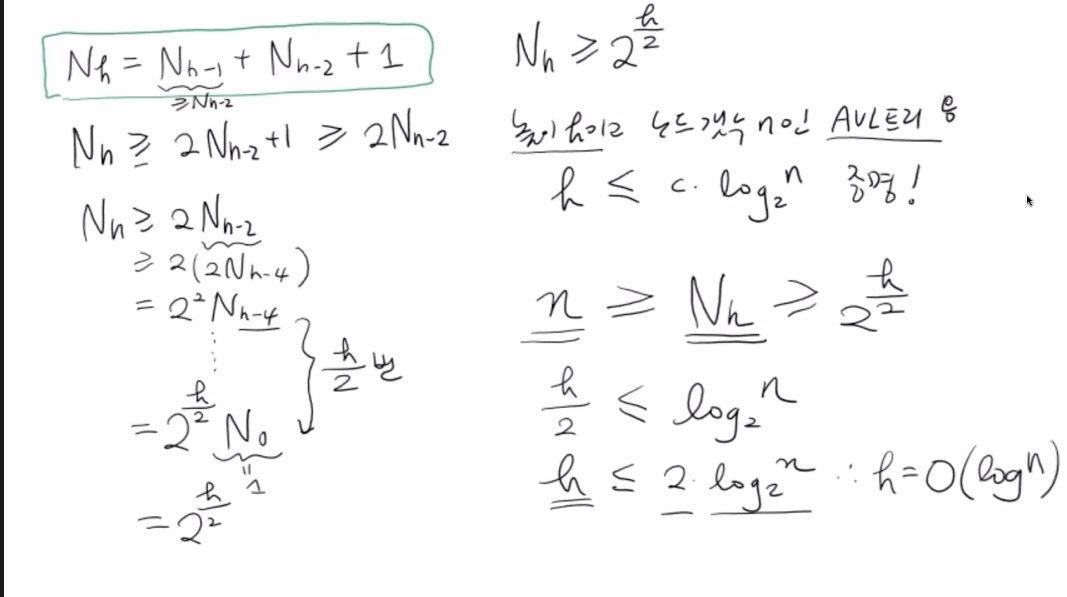 Nh = Nh-1 + Nh-2 + 1
≥Nh-2
Nh ≥ 2Nh-2+1 ≥ 2Nh-2
Nh ≥ 2Nh-2
≥ 2(2Nh-4)
= 2² Nh-4
h/2 번
= 2^(h/2) N0
" 1
= 2^(h/2)
Nh ≥ 2^(h/2)
높이 h이고 노드갯수 n인 AVL트리
h ≤ c · log₂n 증명!
n ≥ Nh ≥ 2^(h/2)
h/2 ≤ log₂n
h ≤ 2 · log₂n ∴ h=O(logn)